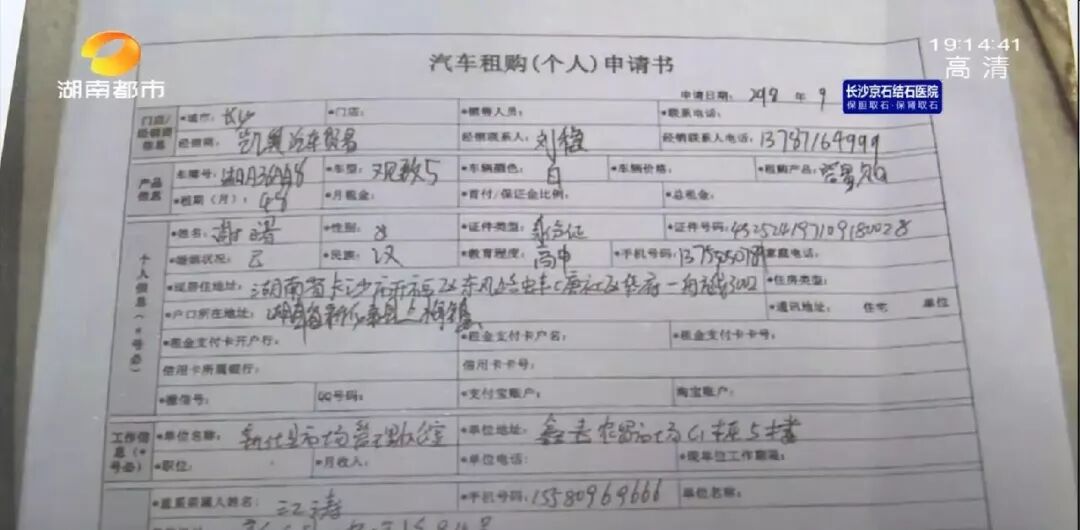 湖南都市
19:14:41
高清
长沙京石结石医院
保胆取石·保肾取石
汽车租购(个人)申请书
申请日期: 2018 年 9
门店/经销商信息
*城市: 长沙 *门店: *销售人员: *联系电话:
经销商: 凯奥汽车贸易 经销联系人: 刘 经销联系人电话: 13787164999
产品信息
车牌号: *车型: 观致5 *车辆颜色: 白 *车辆价格: *租购产品:
*租期(月): 48 *月租金: *首付/保证金比例: *总租金:
个人信息(*号必)
*姓名: 谢 *性别: 女 *证件类型: 身份证 *证件号码:
*婚姻状况: 已 *民族: 汉 *教育程度: 高中 *手机号码: 家庭电话:
*现居住地址: 湖南省长沙市开福区东风路 *住房类型:
*户口所在地址: 湖南省新化县上梅镇 *通讯地址: 住宅 单位
*租金支付卡开户行: *租金支付卡户名: *租金支付卡卡号:
信用卡所属银行: 信用卡卡号:
*微信号: QQ号码: *支付宝账户: 淘宝账户:
工作信息(*号必)
*单位名称: 新化县市场管理 *单位地址: 农贸市场 5楼
*职位: *月收入: *单位电话: *现单位工作期限:
*直系亲属人姓名: 江涛 *手机号码: 15580969666 单位名称: